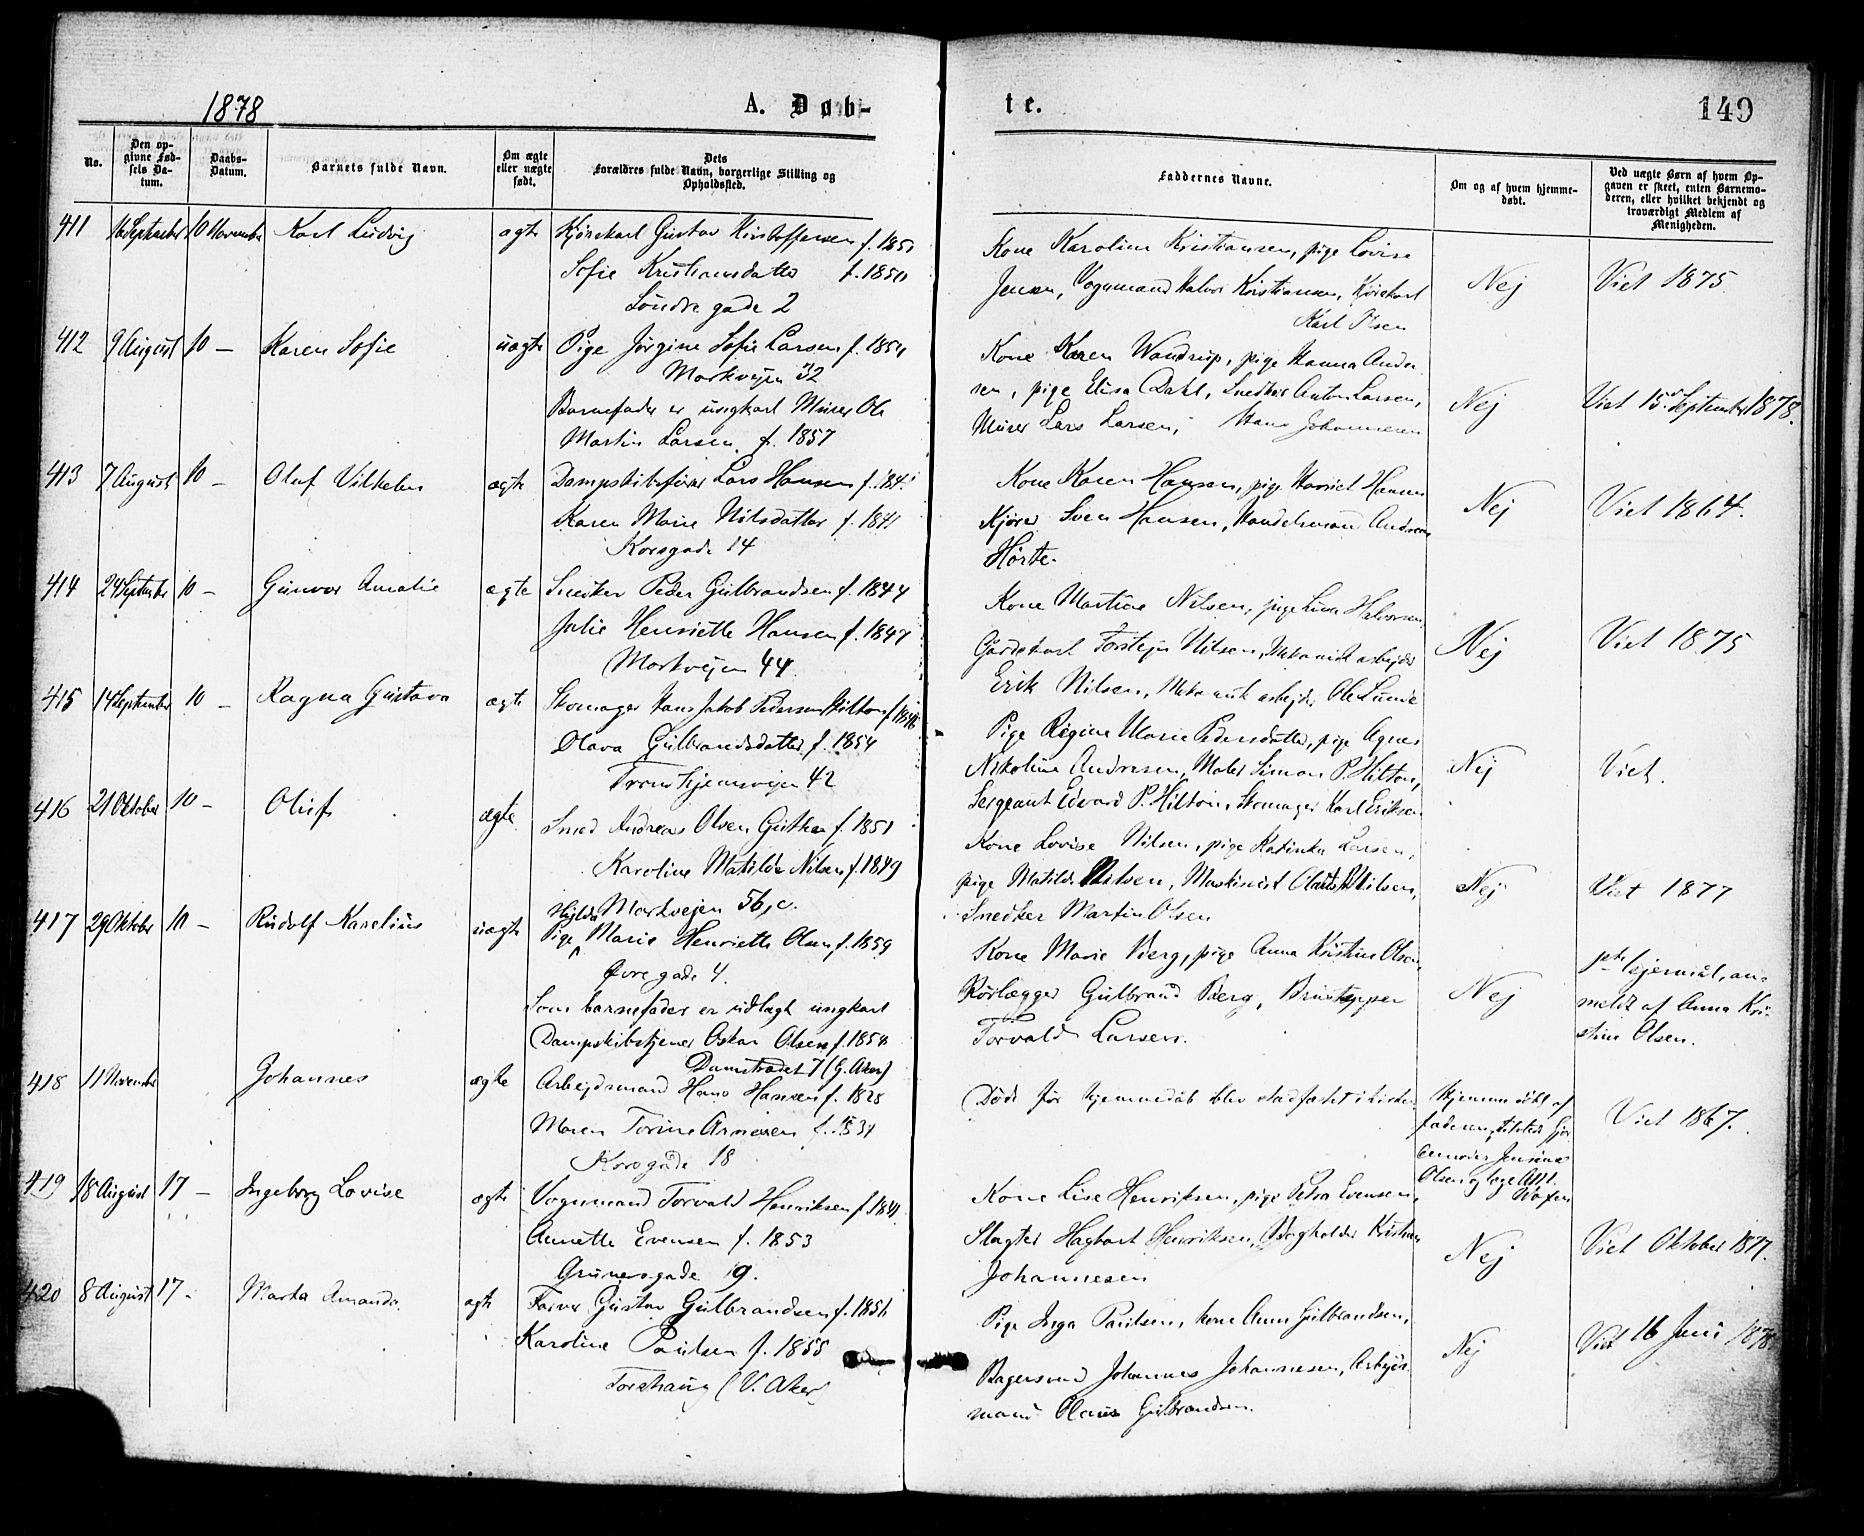 1878
A. Døb-
te.
149
No.
Den opgivne Fødsels Datum.
Daabs-Datum.
Barnets fulde Navn.
Om ægte eller uægte født.
Dets Forældres fulde Navn, borgerlige Stilling og Opholdssted.
Faddernes Navne.
Om og af hvem hjemmedøbt.
Ved uægte Børn af hvem Opgaven er skeet, enten Barnemoderen, eller hvilket bekjendt og troværdigt Medlem af Menigheden.
411 September 10 November Karl Ludvig ægte Kjørekarl Gustav Kristoffersen f.
Sofie Kristiansdatter f.
Søndre gade 2
Kone Karoline Kristiansen, pige Lovise
Jensen, Vognmand Halvor Kristiansen, Kjørekarl
Karl
Nej
Viet 1875
412 9 August 10 — Karen Sofie uægte Pige Jørgine Sofie Larsen f.
Markvejen 32
Barnefader er ungkarl Murer Ole
Martin Larsen f. 1857
Kone Karen Wandrup, pige Hanna Ander
sen, pige Elisa Dahl, Snedker Anton Larsen,
Murer Lars Larsen, Hans Johannesen
Nej
Viet 15 September 1878.
413 7 August 10 — Oluf Vilhelm ægte Dampskibsfører Lars Hansen f.
Karen Marie Nilsdatter f. 1841
Korsgade 14
Kone Karen Hansen, pige Harriet Hansen
Kjører Sven Hansen, Handelsmand Andreas
Hørte.
Nej
Viet 1864.
414 24 September 10 — Gunvor Amalie ægte Snedker Peder Gulbrandsen f. 1844
Julie Henriette Hansen f. 1847
Markvejen 44
Kone Martine Nilsen, pige Lina Halvorsen,
Gardekarl Torstejn Nilsen, Mekanisk arbejder
Erik Nilsen, Mekanisk arbejder Ole Lunde
Nej
Viet 1875
415 14 September 10 — Ragna Gustava ægte Skomager Hans Jakob Pedersen Hilton f.
Olava Gulbrandsdatter f. 1854
Trondhjemsvejen 42
Pige Regine Marie Pedersdatter, pige Agnes
Nikoline Andresen, Maler Simon P. Hilton,
Sergeant Edvard P. Hilton, Skomager Karl Eriksen
Nej
Viet.
416 21 Oktober 10 — Oluf ægte Smed Andreas Olsen f. 1851
Karoline Matilde Nilsen f. 1849
Markvejen 56, c.
Kone Lovise Nilsen, pige Katinka Larsen,
pige Matilde Nilsen, Maskinist Nilsen,
Snedker Martin Olsen
Nej
Viet 1877
417 29 Oktober 10 — Rudolf Karelius uægte Pige Hilda Marie Henriette Olsen f. 1859
Øvre gade 4.
Som barnefader er udlagt ungkarl
Dampskibstjener Oskar Olsen f.
Damstrædet 7 (G. Aker)
Kone Marie Berg, pige Anna Kristine Olsen,
Rørlægger Gulbrand Berg,
Torvald Larsen.
Nej
lejermål, an-
meldt af Anna Kri-
stine Olsen.
418 11 November Johannes ægte Arbejdsmand Hans Hansen f. 1828
Maren Torine Arnesen f.
Korsgade 18
Døde før hjemmedåb blev stadfæstet i kirken
Hjemmedøbt af
faderen, Gjor
demoder Jensine
Olsen og læge
Viet 1867.
419 18 August 17 — Ingeborg Lovise ægte Vognmand Torvald Henriksen f.
Annette Evensen f. 1853
Grünersgade 9.
Kone Lise Henriksen, pige Petra Evensen,
Slagter Hagbart Henriksen, Kristian
Johannesen
Nej
Viet Oktober 1877.
420 8 August 17 — Marta Amanda ægte Farver Gustav Gulbrandsen f.
Karoline Paulsen f. 1855
Torshaug (V. Aker)
Pige Inga Paulsen, kone Anne Gulbrandsen,
Bagersvend Johannes Johannesen, Arbejds-
mand Olaus Gulbrandsen.
Nej
Viet 16 Juni 1878.